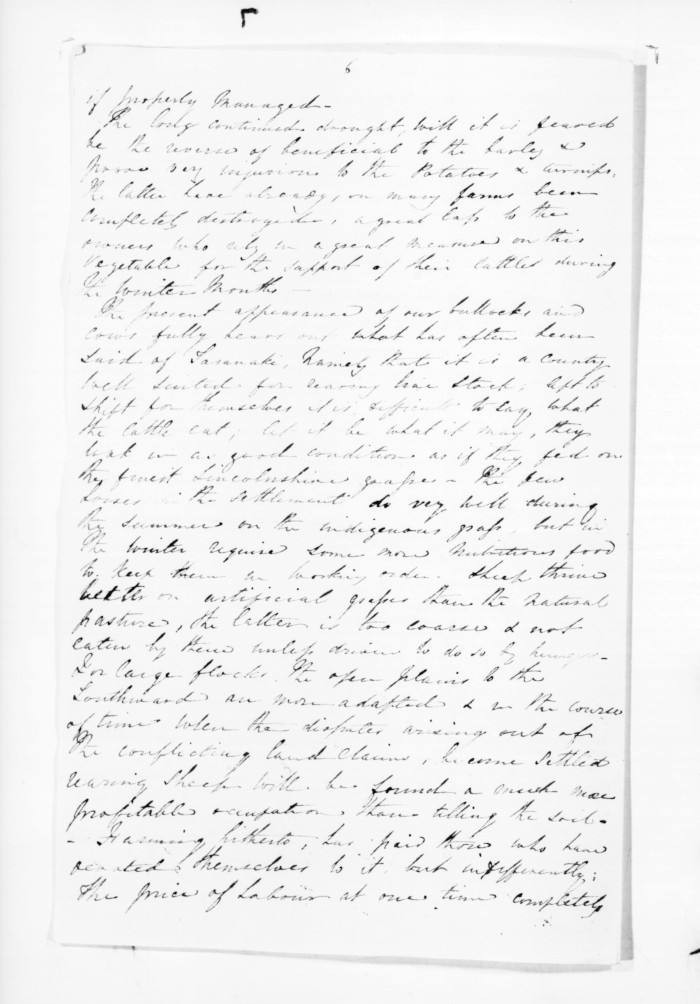 6
if properly managed -
The long continued drought, will it is feared
be the reverse of beneficial to the barley &
prove very injurious to the Potatoes & turnips,
the latter have already, on many farms been
completely destroyed, a great loss to the
owners who rely in a great measure on this
Vegetable for the support of their Cattle during
the Winter Months -
The present appearance of our bullocks and
cows fully bears out what has often been
said of Taranaki, Namely that it is a country
well suited for rearing live Stock; left to
shift for themselves it is difficult to say what
the cattle eat; let it be what it may, they
look in as good condition as if they fed on
the finest Lincolnshire grasses - The few
horses in the settlement do very well during
the summer on the indigenous grass, but in
the winter require some more nutritious food
to keep them in working order. Sheep thrive
better on artificial grasses than the natural
pasture, the latter is too coarse & not
eaten by them unless driven to do so by hunger -
For large flocks the open plains to the
Southward are more adapted & in the course
of time when the disputes arising out of
the conflicting land Claims, become settled
rearing Sheep will be found a much more
profitable occupation than tilling the soil -
- Farming hitherto, has paid those who have
devoted themselves to it but indifferently;
the price of Labour at one time completely